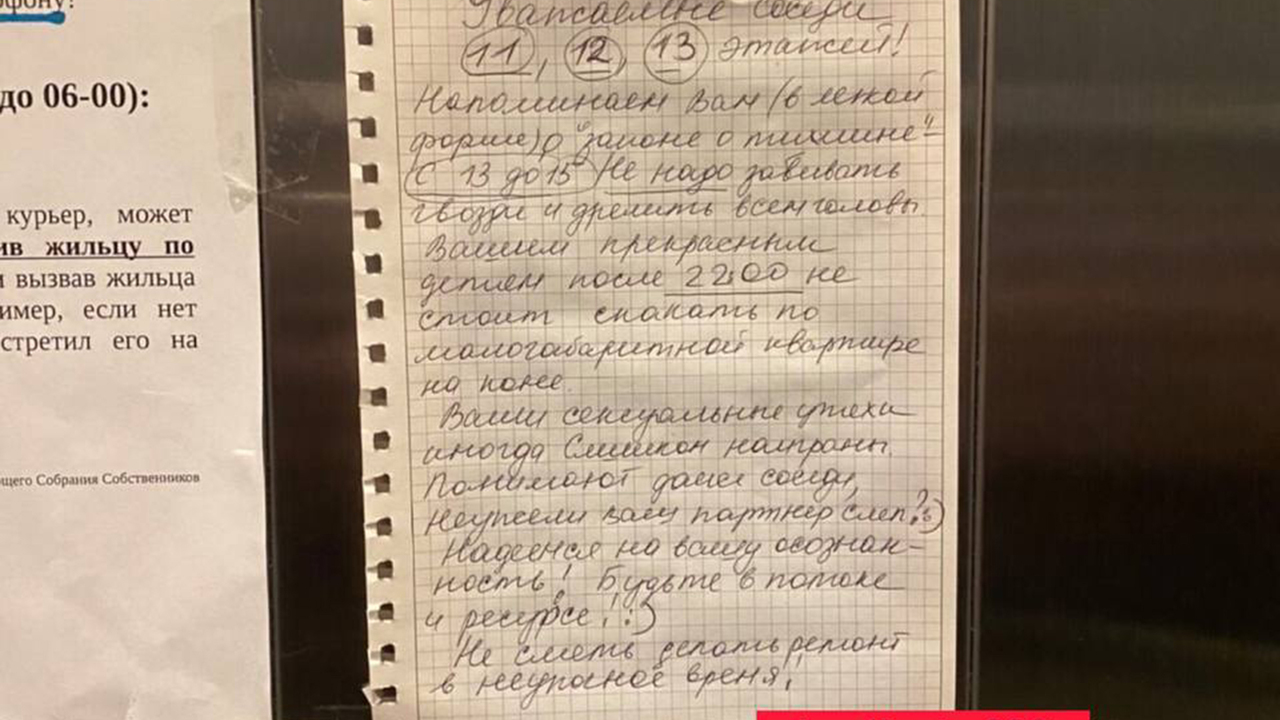 офону!
до 06-00):
курьер, может
ив жильцу по
и вызвав жильца
имер, если нет
стретил его на
щего Собрания Собственников
Уважаемые соседи
11, 12, 13 этажей!
Напоминаем Вам (в легкой
форме) о "законе о тишине"-
С 13 до 15 Не надо забивать
гвозди и дрелить всем головы
Вашим прекрасным
детям после 22:00 не
стоит скакать по
малогабаритной квартире
на коне.
Ваши сексуальные утехи
иногда Слишком наиграны.
Понимают даже соседи,
Неужели ваш партнер слеп?:)
Надеемся на вашу осознан-
ность! Будьте в потоке
и ресурсе! :)
Не сметь делать ремонт
в неурочное время!